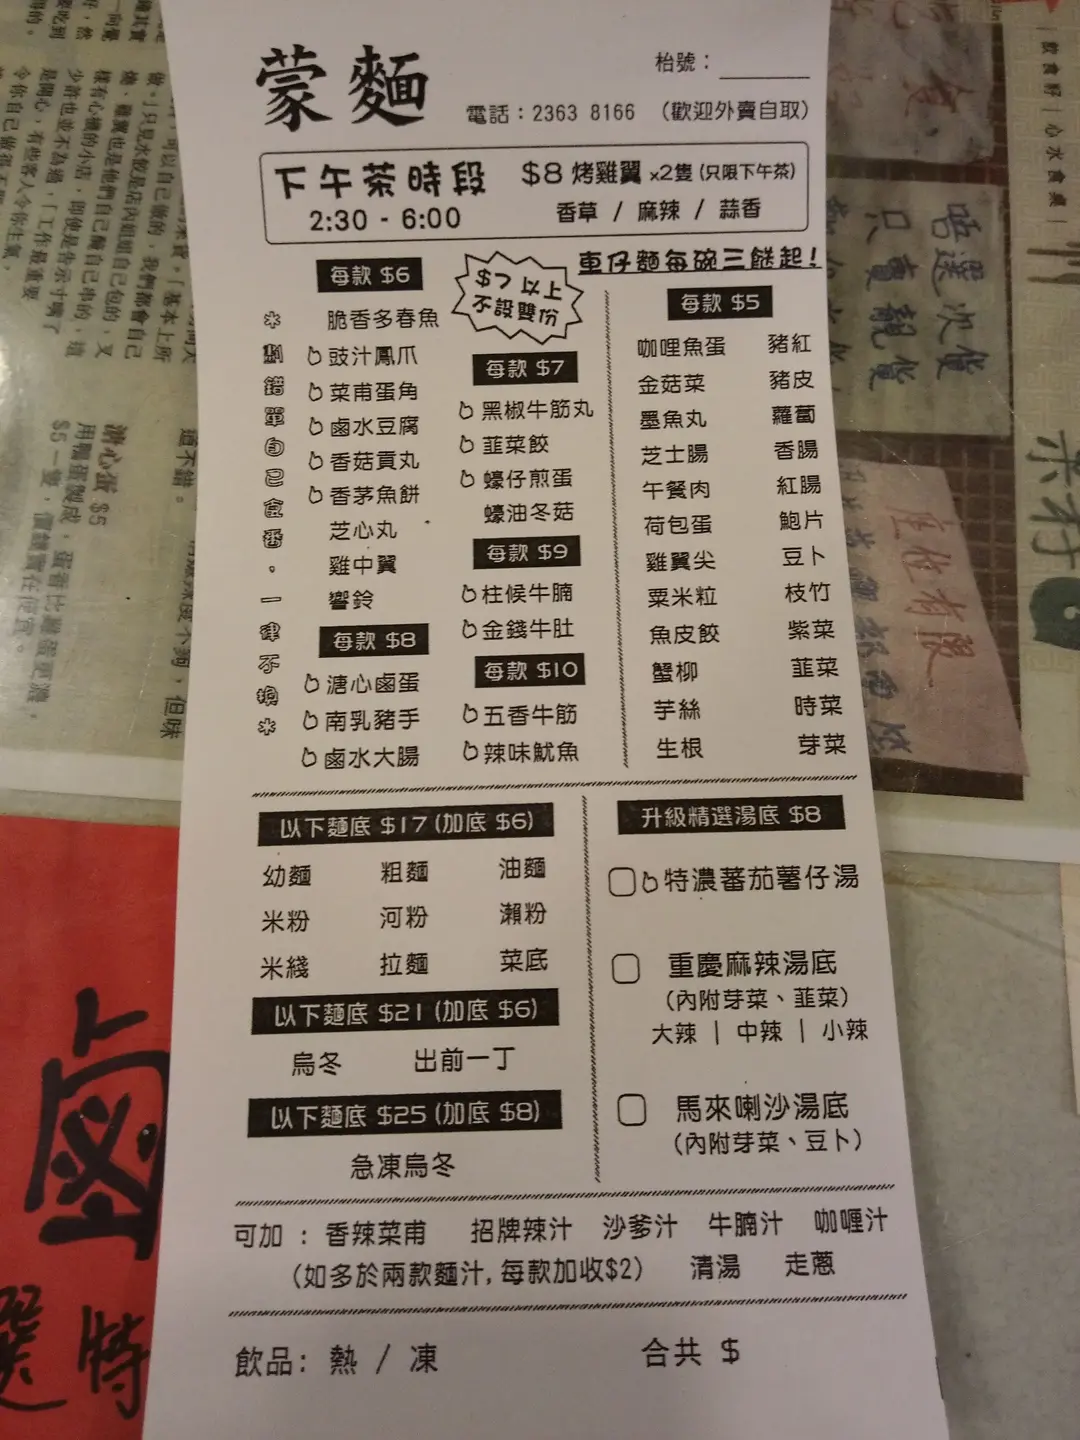 蒙麵
枱號：
電話：2363 8166 （歡迎外賣自取）
下午茶時段
2:30 - 6:00
$8 烤雞翼 x2隻 (只限下午茶)
香草 / 麻辣 / 蒜香
車仔麵每碗三餸起！
$7 以上
不設雙份
＊劃錯單自己食番。一律不換＊
每款 $6
脆香多春魚
豉汁鳳爪
菜甫蛋角
鹵水豆腐
香菇貢丸
香茅魚餅
芝心丸
雞中翼
響鈴
每款 $8
溏心鹵蛋
南乳豬手
鹵水大腸
每款 $7
黑椒牛筋丸
韮菜餃
蠔仔煎蛋
蠔油冬菇
每款 $9
柱候牛腩
金錢牛肚
每款 $10
五香牛筋
辣味魷魚
每款 $5
咖哩魚蛋 豬紅
金菇菜 豬皮
墨魚丸 蘿蔔
芝士腸 香腸
午餐肉 紅腸
荷包蛋 鮑片
雞翼尖 豆卜
粟米粒 枝竹
魚皮餃 紫菜
蟹柳 韮菜
芋絲 時菜
生根 芽菜
以下麵底 $17 (加底 $6)
幼麵 粗麵 油麵
米粉 河粉 瀨粉
米綫 拉麵 菜底
以下麵底 $21 (加底 $6)
烏冬 出前一丁
以下麵底 $25 (加底 $8)
急凍烏冬
升級精選湯底 $8
特濃蕃茄薯仔湯
重慶麻辣湯底
（內附芽菜、韮菜）
大辣 | 中辣 | 小辣
馬來喇沙湯底
（內附芽菜、豆卜）
可加 : 香辣菜甫 招牌辣汁 沙爹汁 牛腩汁 咖喱汁
（如多於兩款麵汁, 每款加收$2） 清湯 走蔥
飲品: 熱 / 凍
合共 $
溏心蛋 $5
用鴨蛋製成，蛋香比雞蛋更濃，
$5一隻，價錢實在便宜。
唔選次貨
只賣靚貨
鹵
選特